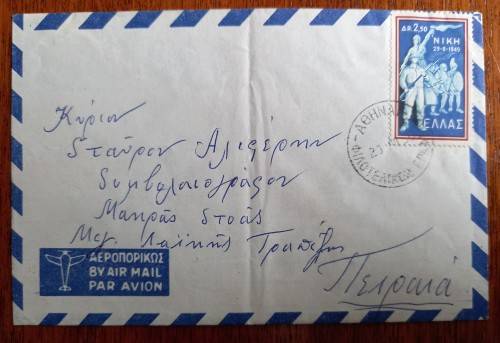 ΔΡ. 2,50
ΝΙΚΗ
29-8-1949
ΕΛΛΑΣ
ΑΘΗΝΑΙ
ΦΙΛΟΤΕΛΙΚΟΝ
Κύριον
Σταῦρον Αλιφέρην
Συμβολαιογράφον
Μακρᾶς Στοᾶς
Μεγ. Λαϊκῆς Τραπέζης
Πειραιᾶ
ΑΕΡΟΠΟΡΙΚΩΣ
BY AIR MAIL
PAR AVION